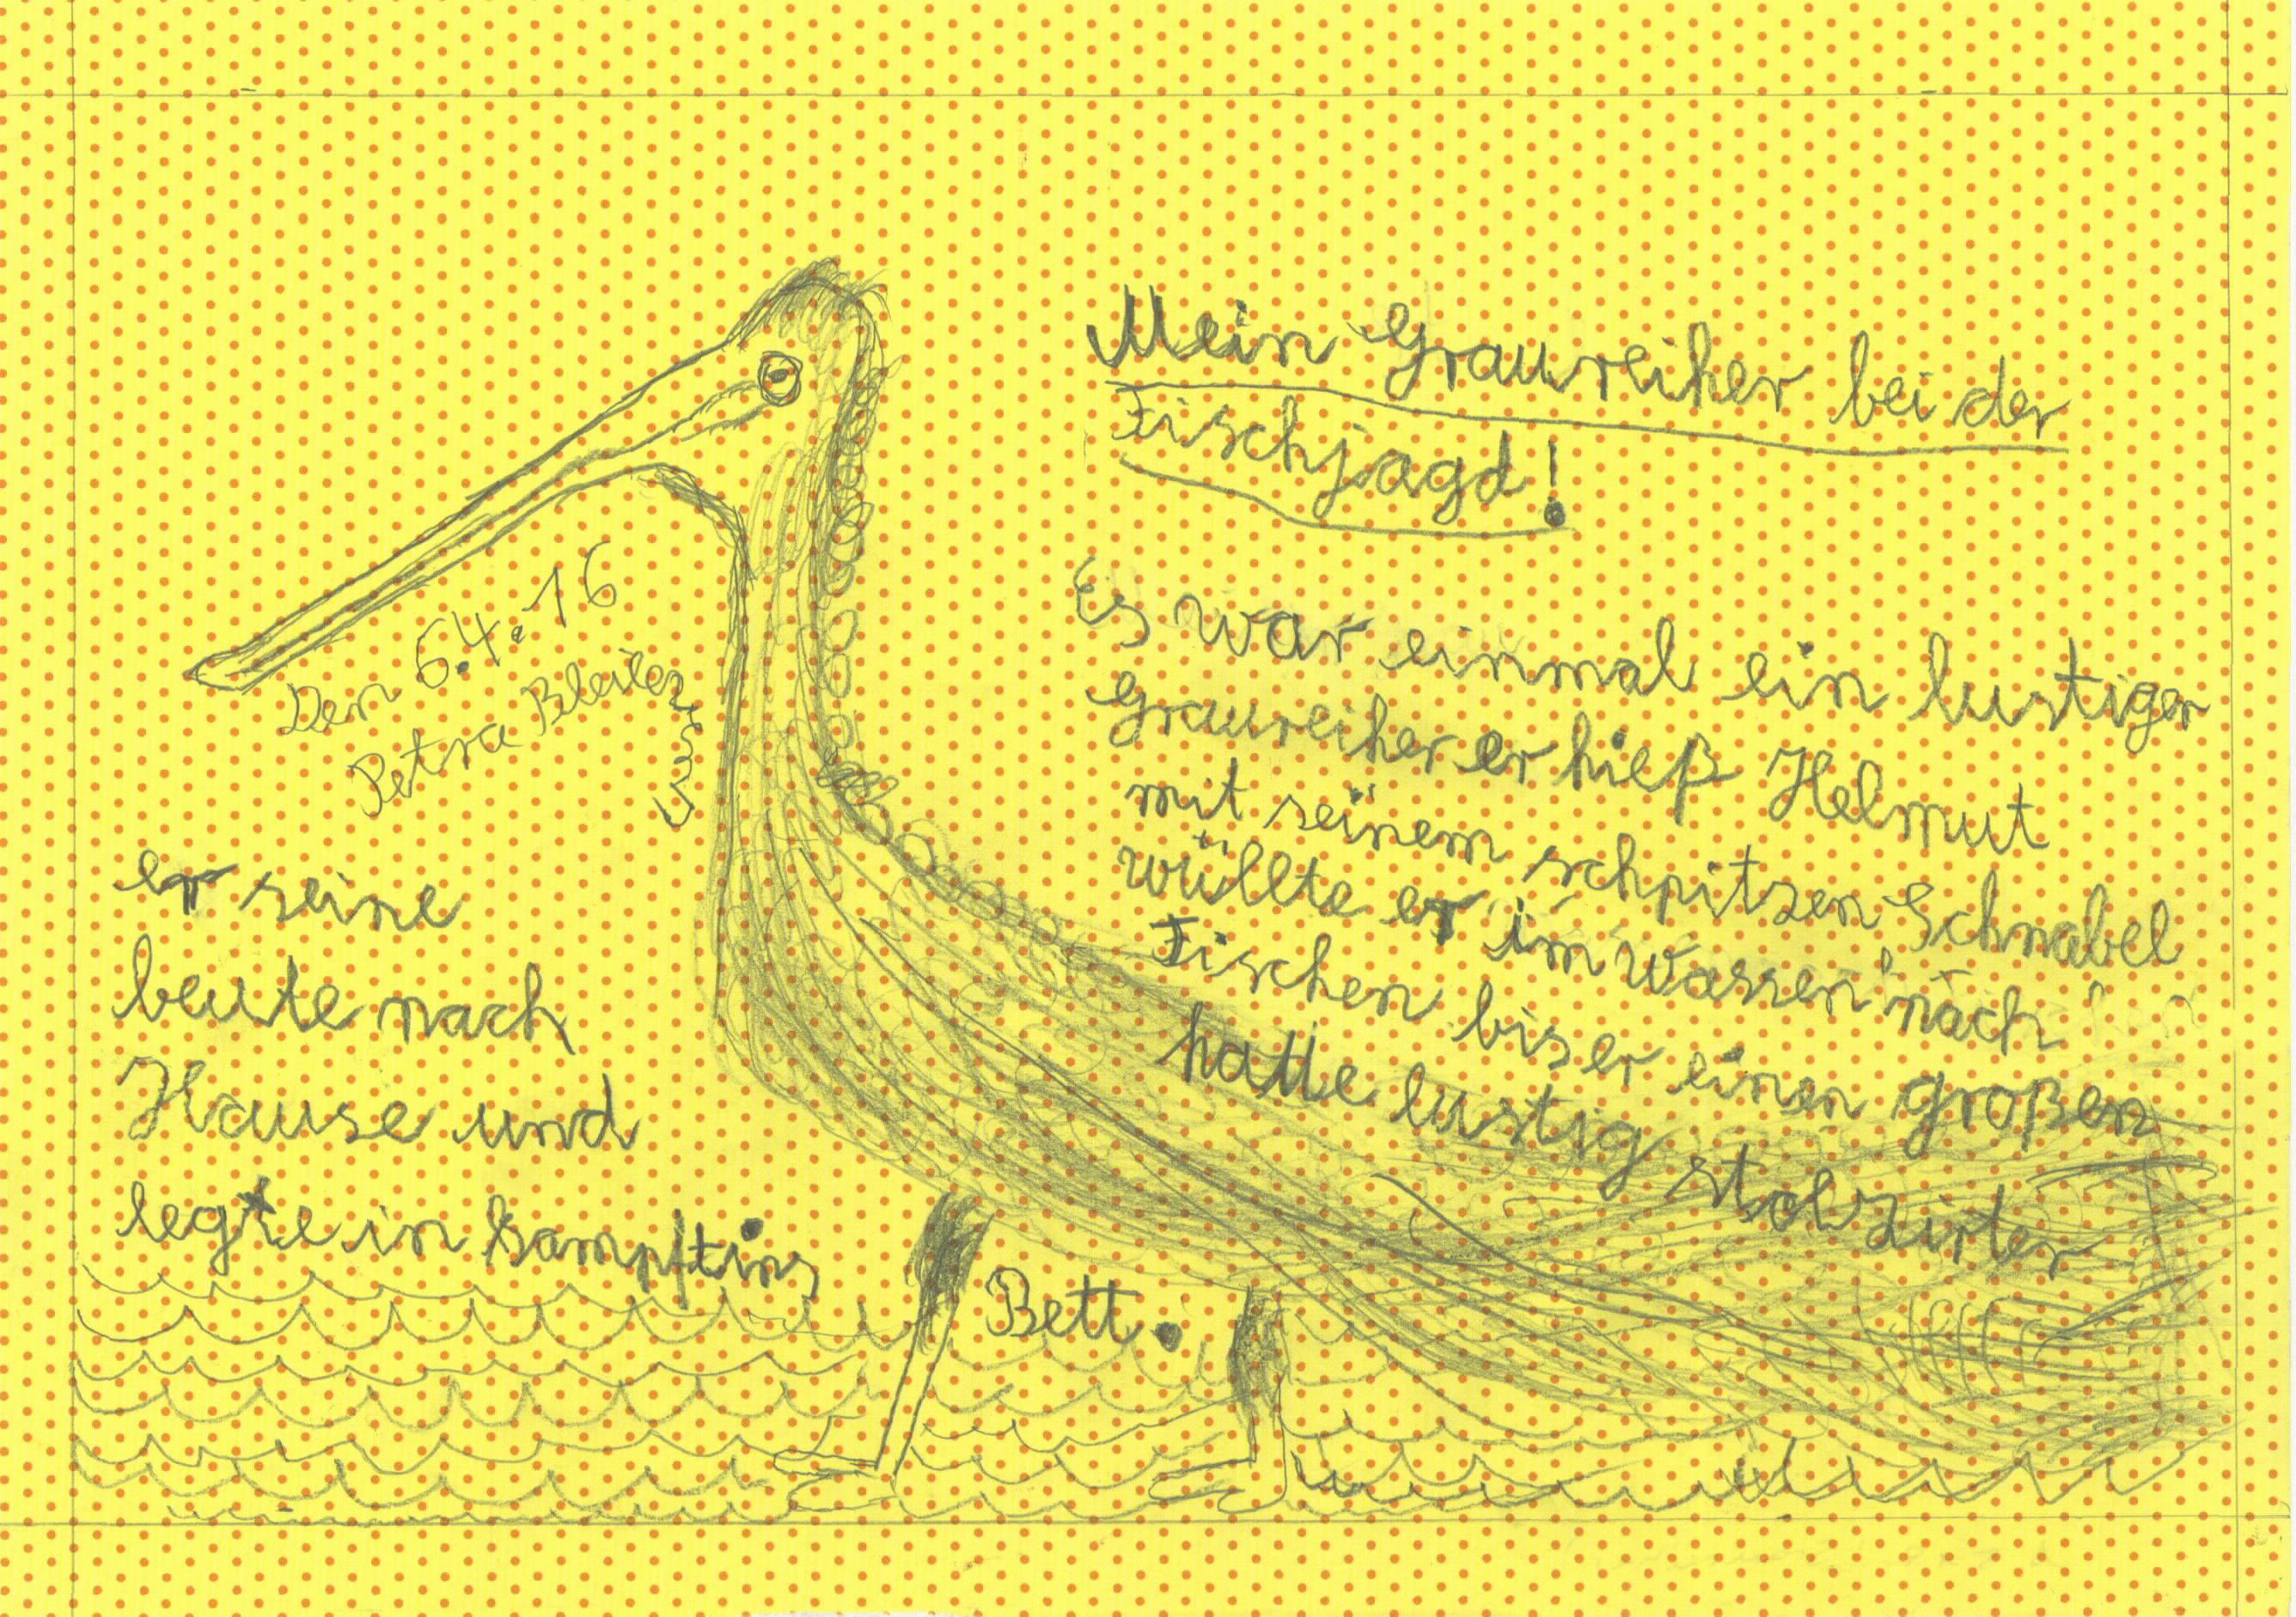 Mein Graureiher bei der
Fischjagd!
Es war einmal ein lustiger
Graureiher er hieß Helmut
mit seinem schpitzen Schnabel
wüllte er im Wassen nach
Fischen bis er einen großen
hatte lustig stolzirter
er seine
beute nach
Hause und
legte in sampftins
Bett.
Den 6.4.16
Petra